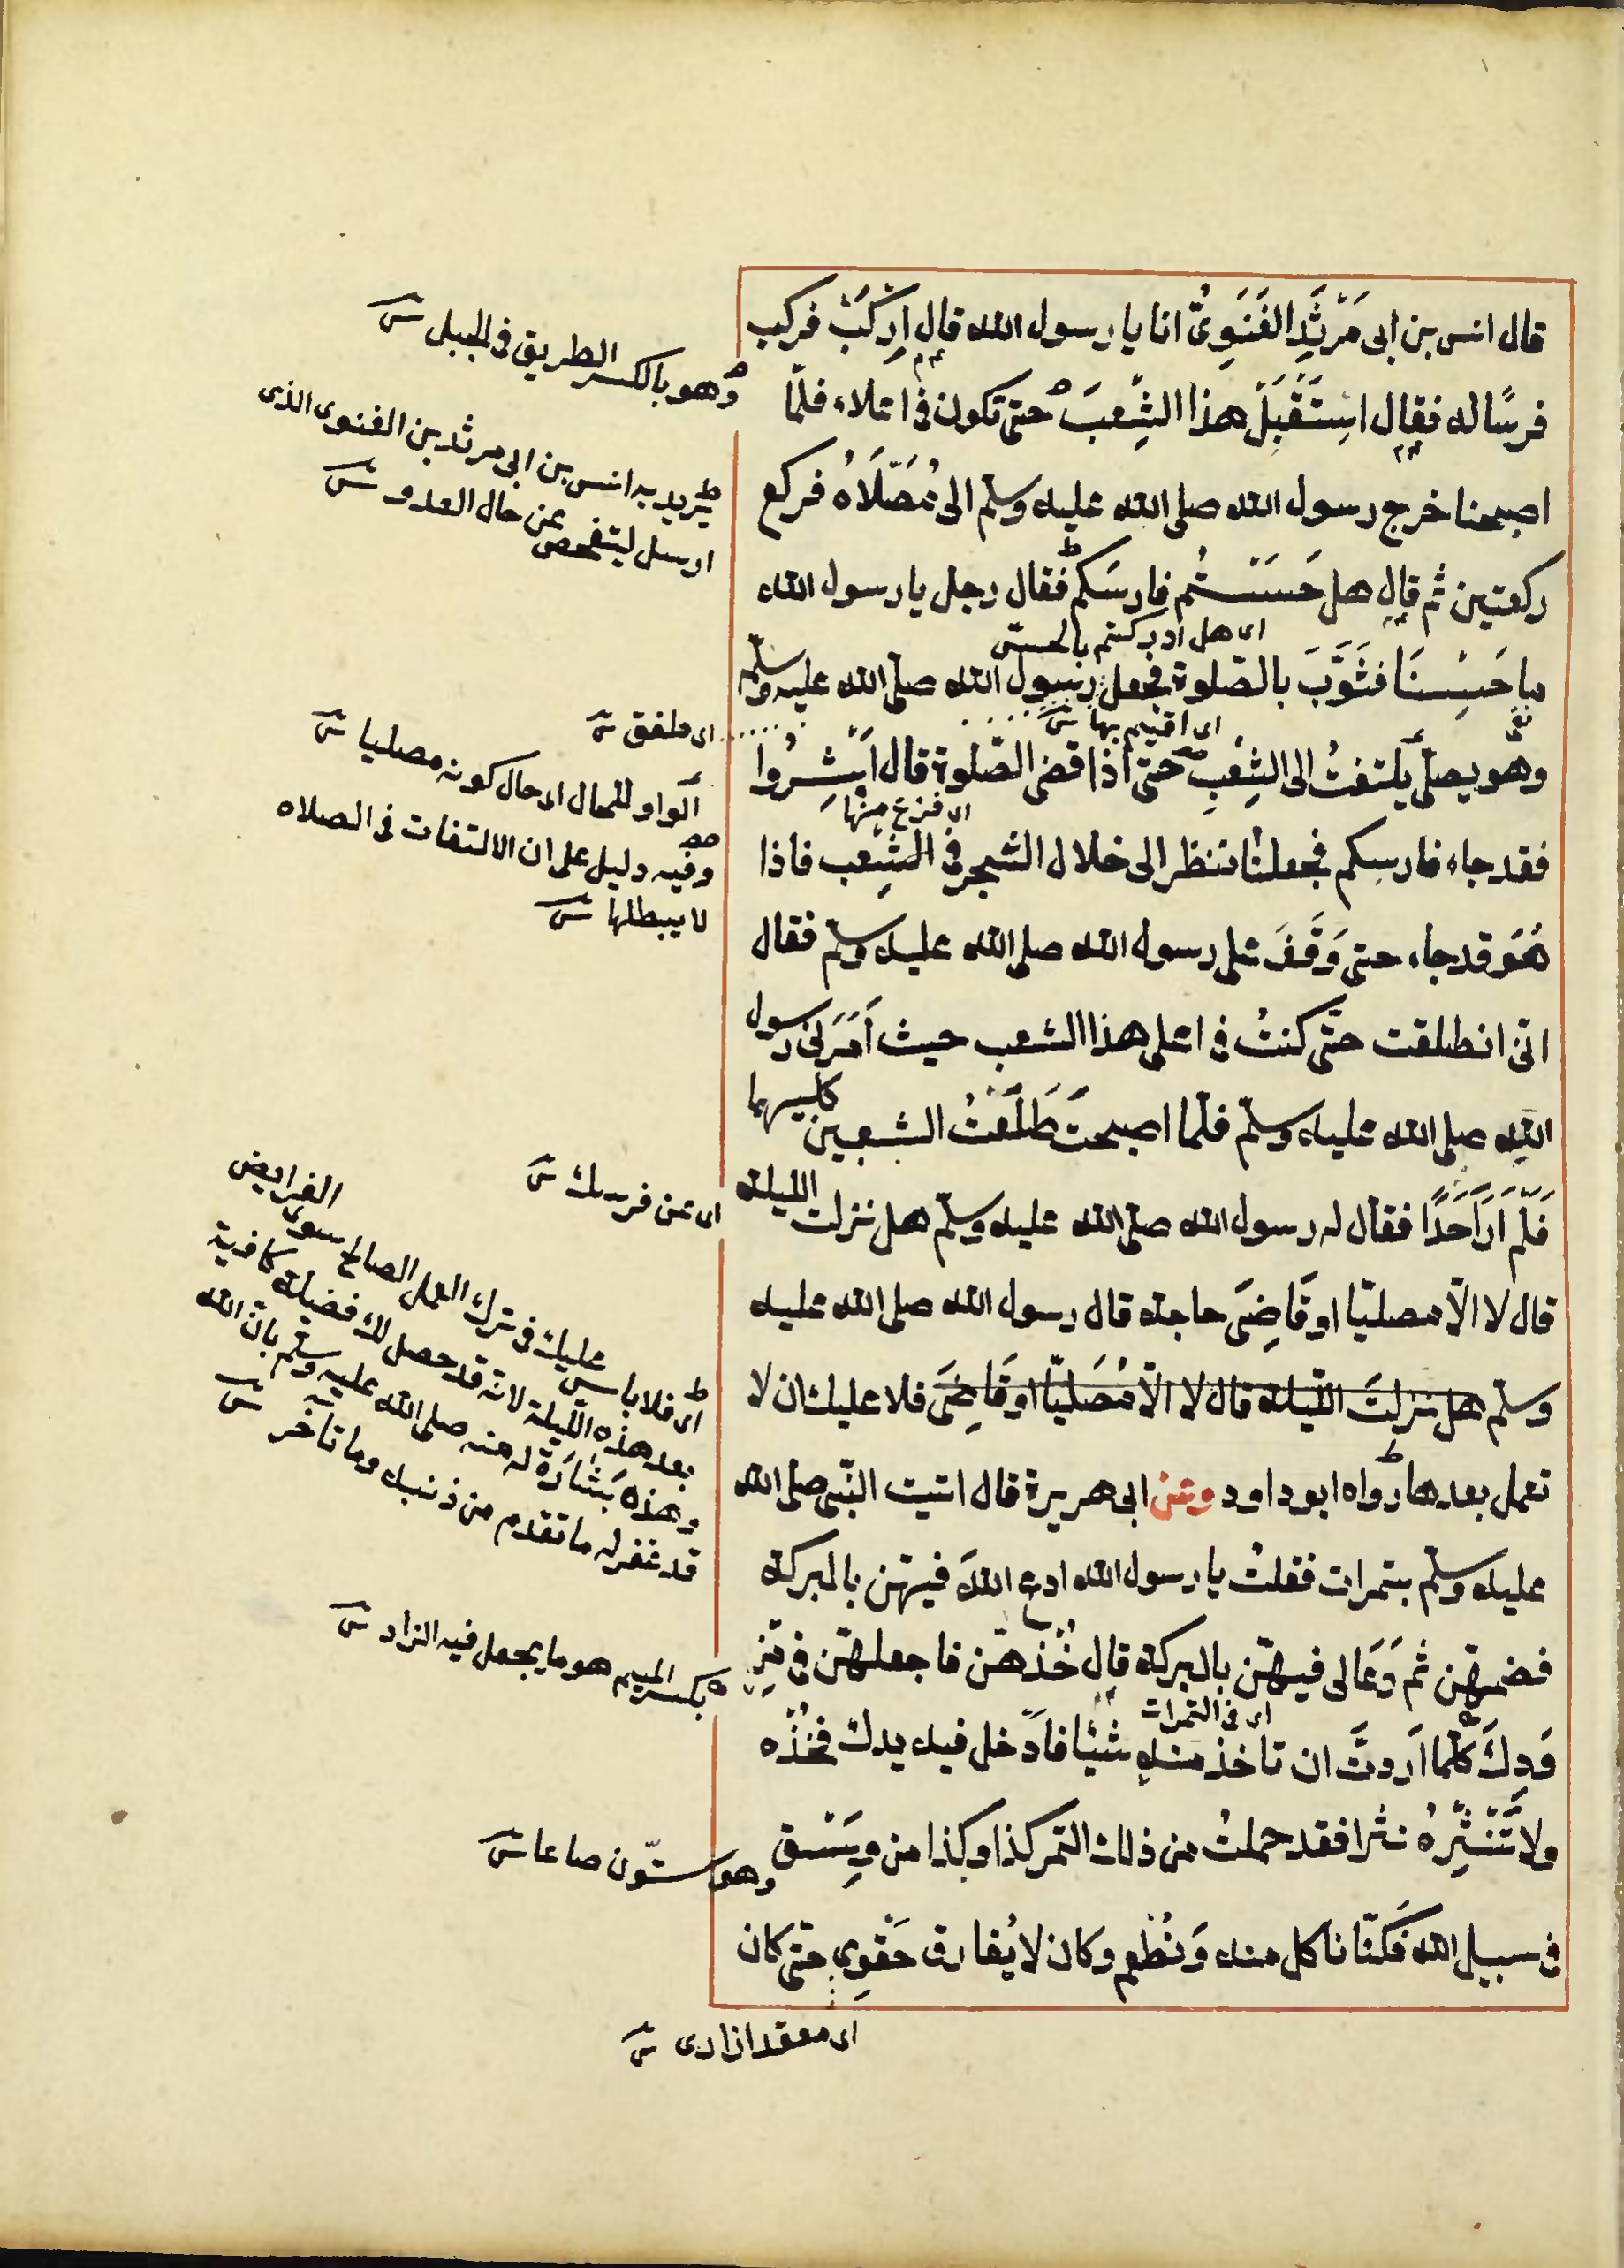 قال انس بن ابى مَرْثَدِ الغَنَوِىُّ انا يا رسول الله قال اِرْكَبْ فركب
فرسًا له فقال اسْتَقْبِلْ هذا الشِّعبَ حتى تكون فى اعلاه فلمّا
اصبحنا خرج رسول الله صلى الله عليه وسلم الى مُصَلَّاهُ فركع
ركعتين ثم قال هل حَسَسْتُم فارسَكم فقال رجل يا رسول الله
اى هل ادركتم بالحسّ
ما حَسِسْنَا فثَوَّبَ بالصّلوة فجعل رسول الله صلى الله عليه وسلم
اى اقيم بها ش
وهو يصلّى يلتفتُ الى الشِعْبِ حتى اذا قضى الصّلوة قال اَبْشِرُوا
اى فرغ منها
فقد جاء فارسكم فجعلنا ننظر الى خلال الشجر فى الشِعب فاذا
هُوَ قد جاء حتى وَقَفَ على رسول الله صلى الله عليه وسلم فقال
انّى انطلقت حتّى كنتُ فى اعلى هذا الشعب حيث اَمَرَنى رسول
الله صلى الله عليه وسلم فلمّا اصبحت طَلَعْتُ الشعبين كليهما
فلَم اَرَ اَحَدًا فقال له رسول الله صلى الله عليه وسلم هل نزلت الليلة
قال لا الّا مصليّا او قَاضِىَ حاجة قال رسول الله صلى الله عليه
وسلم هل نزلتَ الليلة قال لا الّا مُصَليّا او قَاضِىَ فلا عليك ان لا
تعمل بعدها رواه ابو داود وعن ابى هريرة قال اتيت النّبى صلى الله
عليه وسلم بتمرات فقلتُ يا رسول الله ادع اللهَ فيهن بالبركة
فضمهّن ثم دَعَا لى فيهّن بالبركة قال خُذْهّن فاجعلهّن فى مِزْ
وَدِكَ كلّما اَردتَّ ان تاخذ منه شيئا فاَدْخل فيه يدك فخُذْه
اى فى التمرات
ولا تَنْثِرْهُ نثرا فقد حملتُ من ذلك التمر كذا وكذا من وَسْق
فى سبيل الله فكنّا ناكل منه وَنُطْعِم وكان لا يُفارق حَقْوِى حتى كان
وهو بالكسر الطريق فى الجبل ش
يريد به انس بن ابى مرثد بن الغنوى الذى
ارسل ليتفحص عن حال العدو ش
اى ملفق ش
الواو للحال اى حال كونه مصليا ش
وفيه دليل على ان الالتفات فى الصلاه
لا يبطلها ش
اى عن فرسك ش
اى فلا باس عليك فى ترك العمل الصالح سوى الفرايض
بعد هذه الليلة لانه قد حصل لك فضيلة كافية
وهذه بَشارَة له منه صلى الله عليه وسلم بانّ الله
قد غفر له ما تقدم من ذنبه وما تاخر ش
بكسر الميم هو ما يجعل فيه الزاد ش
وهو ستّون صاعا ش
اى معقد ازارى ش